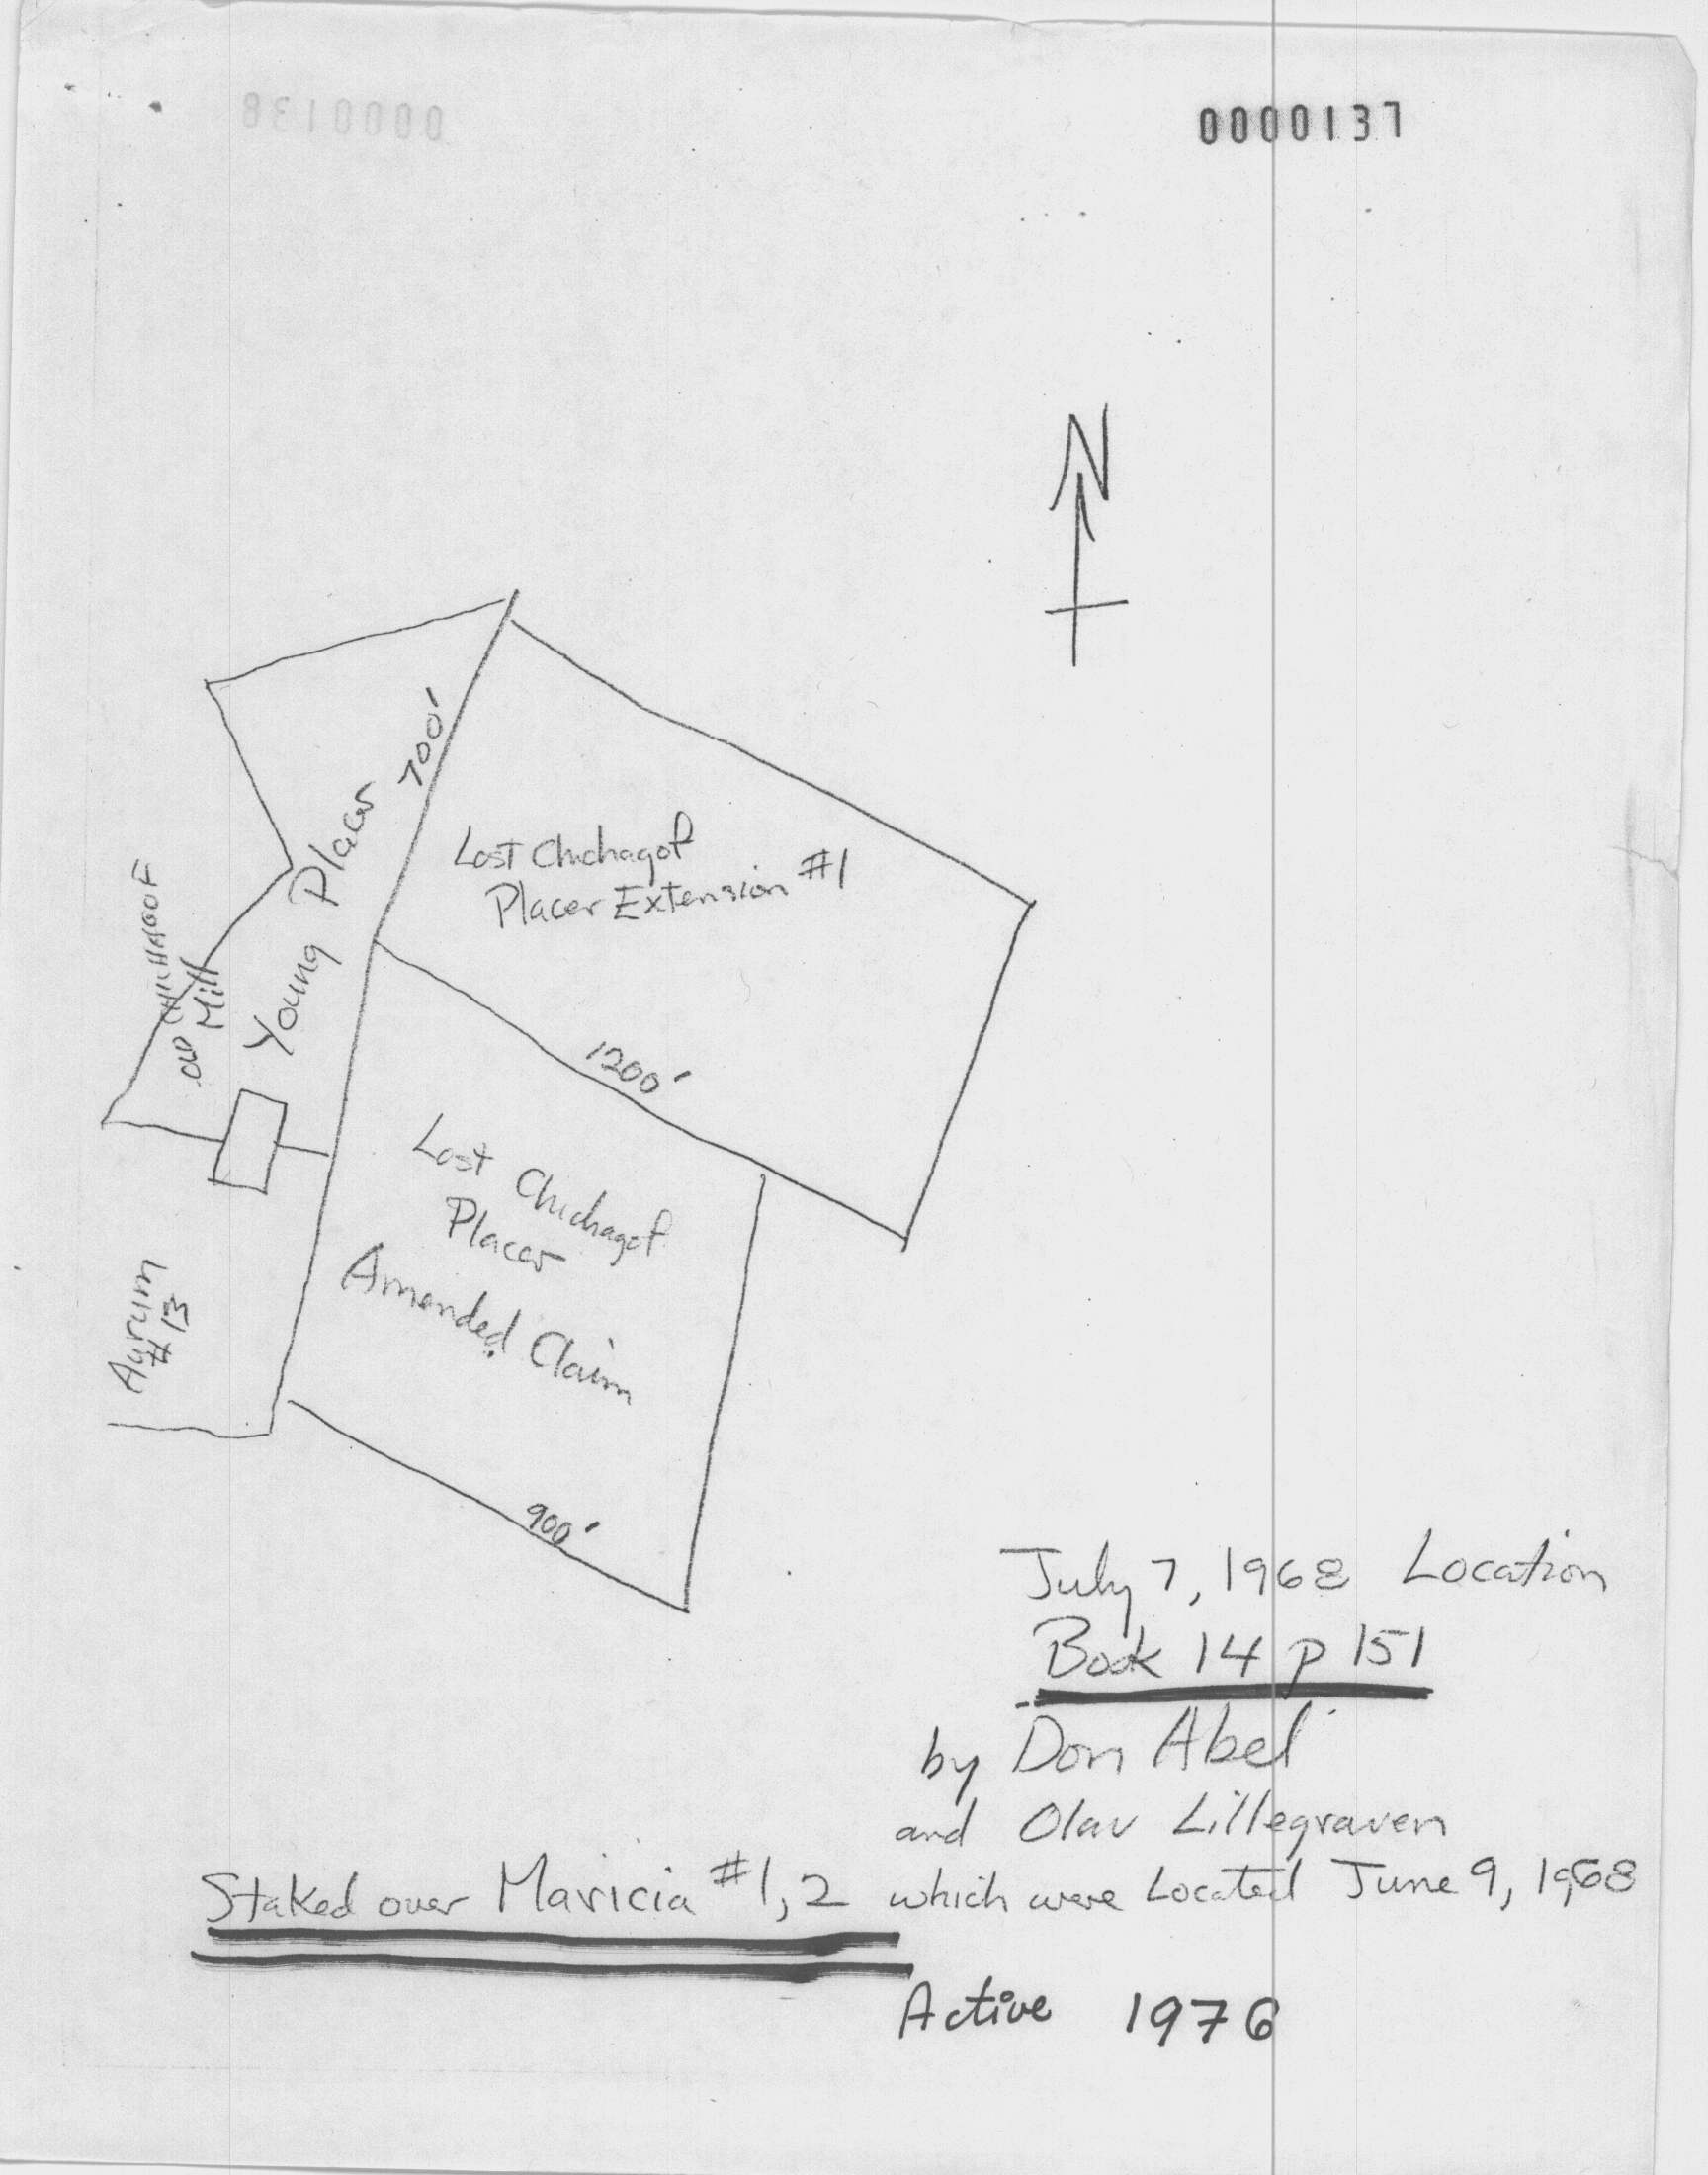 0000138
0000137
N
700'
Young Placer
Lost Chichagof
Placer Extension #1
OLD CHICHAGOF
Mill
1200'
Lost Chichagof
Placer
Amended Claim
Aurum
#13
900'
July 7, 1968 Location
Book 14 p 151
by Don Abel
and Olav Lillegraven
Staked over Maricia #1, 2 which were Located June 9, 1968
Active 1976